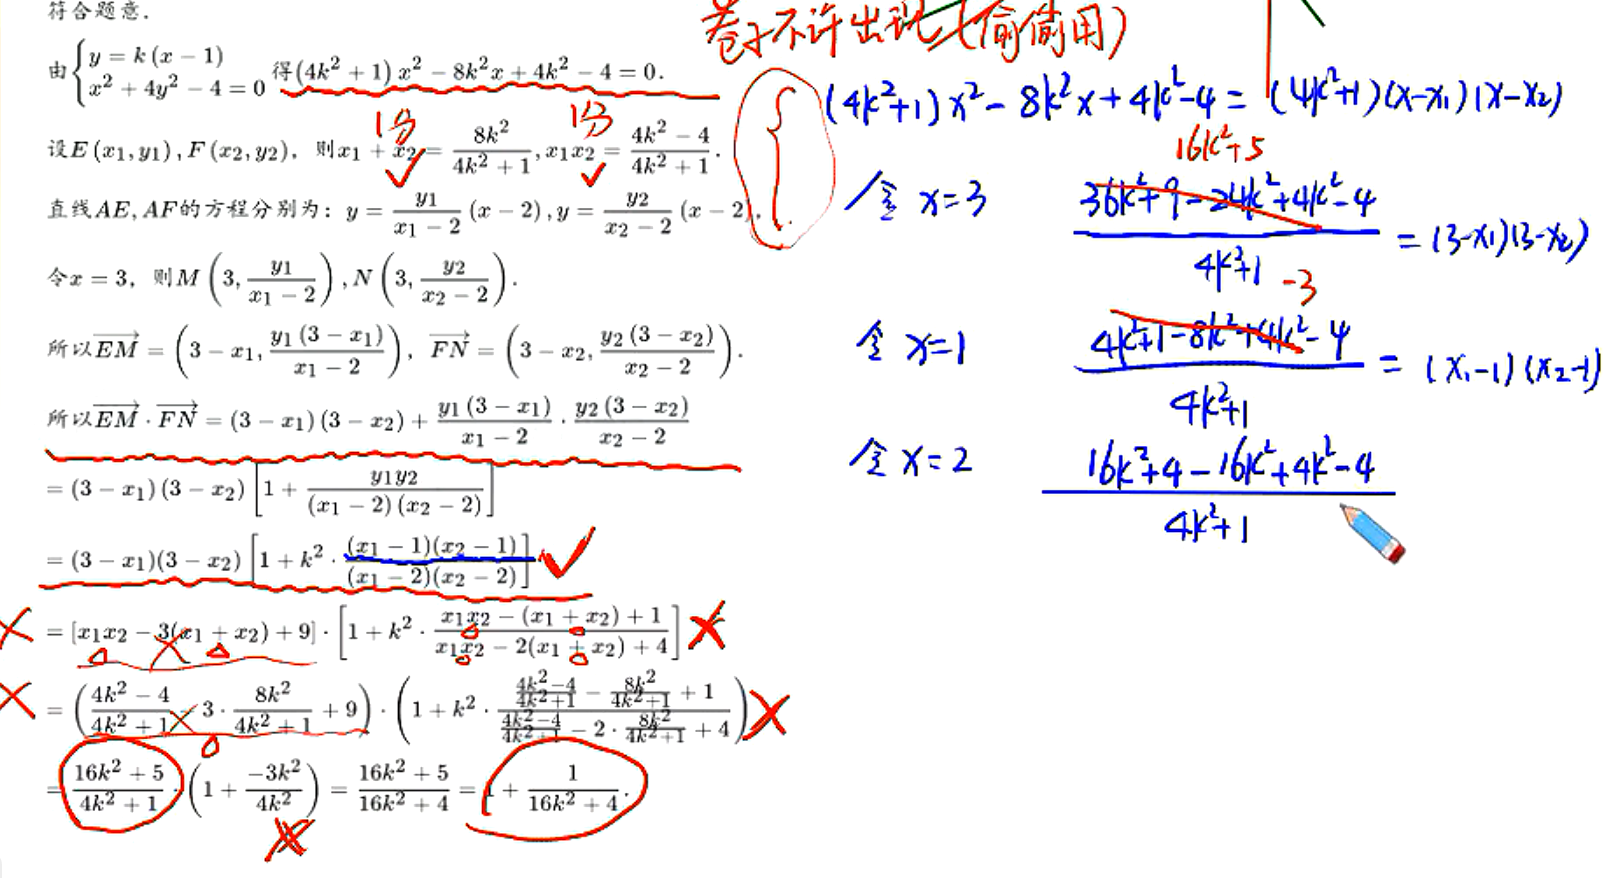 符合题意.
卷子不许出现 (偷偷用)
由{y = k (x − 1)
x² + 4y² − 4 = 0 得(4k² + 1) x² − 8k²x + 4k² − 4 = 0.
1分 1分
设E (x₁, y₁) , F (x₂, y₂), 则x₁ + x₂ = 8k²/(4k² + 1), x₁x₂ = (4k² − 4)/(4k² + 1).
直线AE, AF的方程分别为: y = y₁/(x₁ − 2) (x − 2), y = y₂/(x₂ − 2) (x − 2).
令x = 3, 则M (3, y₁/(x₁ − 2)), N (3, y₂/(x₂ − 2)).
所以EM→ = (3 − x₁, y₁ (3 − x₁)/(x₁ − 2)), FN→ = (3 − x₂, y₂ (3 − x₂)/(x₂ − 2)).
所以EM→ · FN→ = (3 − x₁) (3 − x₂) + y₁ (3 − x₁)/(x₁ − 2) · y₂ (3 − x₂)/(x₂ − 2)
= (3 − x₁) (3 − x₂) [1 + y₁y₂/((x₁ − 2) (x₂ − 2))]
= (3 − x₁)(3 − x₂) [1 + k² · (x₁ − 1)(x₂ − 1)/((x₁ − 2)(x₂ − 2))]
= [x₁x₂ − 3(x₁ + x₂) + 9] · [1 + k² · (x₁x₂ − (x₁ + x₂) + 1)/(x₁x₂ − 2(x₁ + x₂) + 4)]
= ((4k² − 4)/(4k² + 1) − 3 · 8k²/(4k² + 1) + 9) · (1 + k² · ((4k²−4)/(4k²+1) − 8k²/(4k²+1) + 1)/((4k²−4)/(4k²+1) − 2 · 8k²/(4k²+1) + 4))
= (16k² + 5)/(4k² + 1) · (1 + −3k²/4k²) = (16k² + 5)/(16k² + 4) = 1 + 1/(16k² + 4).
{(4k²+1)x² − 8k²x + 4k² − 4 = (4k²+1)(x−x₁)(x−x₂)
16k²+5
令 x=3 (36k²+9−24k²+4k²−4)/(4k²+1) = (3−x₁)(3−x₂)
−3
令 x=1 (4k²+1−8k²+4k²−4)/(4k²+1) = (x₁−1)(x₂−1)
令 x=2 (16k²+4−16k²+4k²−4)/(4k²+1)